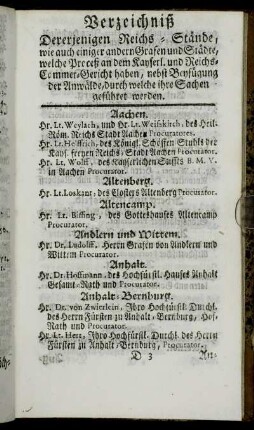 Verzeichniß
Dererjenigen Reichs-Stände,
wie auch einiger andern Grafen und Städte,
welche Proceß an dem Kayserl. und Reichs-
Cammer-Gericht haben, nebst Beyfügung
der Anwälde, durch welche ihre Sachen
geführet werden.
Aachen.
Hr. Lt. Weylach, und Hr. Lt. Weiskirch, des Heil.
Röm. Reichs Stadt Aachen Procuratores.
Hr. Lt. Helffrich, des Königl. Schöffen Stuhls der
Kays. freyen Reichs-Stadt Aachen Procurator.
Hr. Lt. Wolff, des Kayserlichen Stiffts B. M. V.
in Aachen Procurator.
Altenberg.
Hr. Lt. Loskant, des Closters Altenberg Procurator.
Altencamp.
Hr. Lt. Bissing, des Gotteshauses Altencamp
Procurator.
Andlern und Wittem.
Hr. Dr. Ludolff, Herrn Grafen von Andlern und
Wittem Procurator.
Anhalt.
Hr. Dr. Hoffmann, des Hochfürstl. Hauses Anhalt
Gesamt-Rath und Procurator.
Anhalt-Bernburg.
Hr. Dr. von Zwierlein, Ihro Hochfürstl. Durchl.
des Herrn Fürsten zu Anhalt-Bernburg, Hof-
Rath und Procurator.
Hr. Lt. Hert, Ihro Hochfürstl. Durchl. des Herrn
Fürsten zu Anhalt-Bernburg, Procurator.
D 3 An-